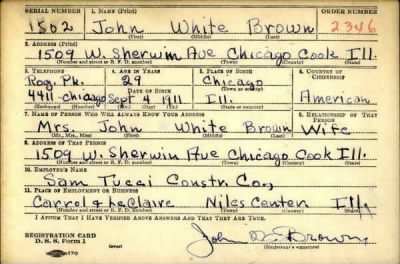 SERIAL NUMBER 1. NAME (Print) ORDER NUMBER
1502 John White Brown 2346
(First) (Middle) (Last)
2. ADDRESS (Print)
1509 W. Sherwin Ave Chicago Cook Ill.
(Number and street or R. F. D. number) (Town) (County) (State)
3. TELEPHONE 4. AGE IN YEARS 5. PLACE OF BIRTH 6. COUNTRY OF CITIZENSHIP
Rog. Pk. 29 Chicago
DATE OF BIRTH (Town or county)
4411-chicago Sept 1911 Ill. American
(Exchange) (Number) (Mo.) (Day) (Yr.) (State or country)
7. NAME OF PERSON WHO WILL ALWAYS KNOW YOUR ADDRESS 8. RELATIONSHIP OF THAT PERSON
Mrs. John White Brown Wife
(Mr., Mrs., Miss) (First) (Middle) (Last)
9. ADDRESS OF THAT PERSON
1509 W. Sherwin Ave Chicago Cook Ill.
(Number and street or R. F. D. number) (Town) (County) (State)
10. EMPLOYER'S NAME
Sam Tucci Constr. Co.,
11. PLACE OF EMPLOYMENT OR BUSINESS
Carrol & LeClaire Niles Center Ill.
(Number and street or R. F. D. number) (Town) (County) (State)
I AFFIRM THAT I HAVE VERIFIED ABOVE ANSWERS AND THAT THEY ARE TRUE.
REGISTRATION CARD
D. S. S. Form 1 (over) John W. Brown
(Registrant's signature)